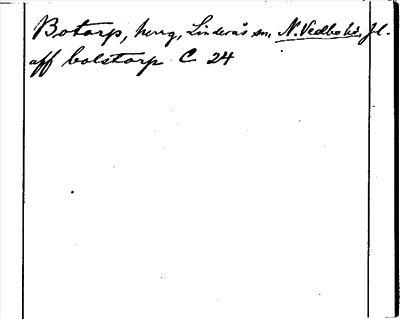 Botorp, herrg, Linderås sn, N. Vedbo hd, Jl.
aff bolstorp C 24